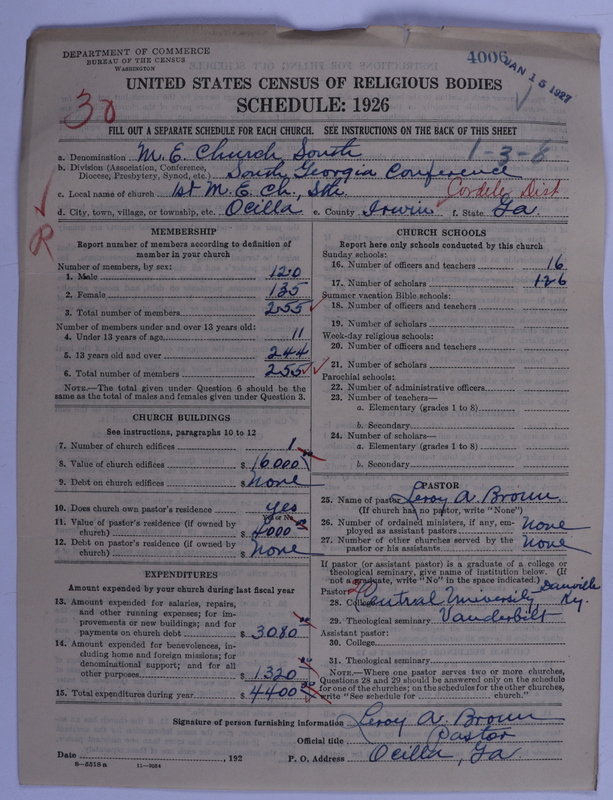 DEPARTMENT OF COMMERCE
BUREAU OF THE CENSUS
WASHINGTON
4006
JAN 15 1927
UNITED STATES CENSUS OF RELIGIOUS BODIES
SCHEDULE: 1926
30
FILL OUT A SEPARATE SCHEDULE FOR EACH CHURCH. SEE INSTRUCTIONS ON THE BACK OF THIS SHEET
a. Denomination M. E. Church South 1-3-8
b. Division (Association, Conference, Diocese, Presbytery, Synod, etc.) South Georgia Conference
c. Local name of church 1st M. E. Ch., Sth. Cordele Dist
d. City, town, village, or township, etc. Ocilla e. County Irwin f. State Ga.
R
MEMBERSHIP
Report number of members according to definition of
member in your church
Number of members, by sex:
1. Male 120
2. Female 135
3. Total number of members 255
Number of members under and over 13 years old:
4. Under 13 years of age 11
5. 13 years old and over 244
6. Total number of members 255
NOTE.—The total given under Question 6 should be
same as the total of males and females given under Question 3.
CHURCH BUILDINGS
See instructions, paragraphs 10 to 12
7. Number of church edifices 1
8. Value of church edifices $ 16000 00
9. Debt on church edifices $ None
10. Does church own pastor's residence yes
Yes or No
11. Value of pastor's residence (if owned by
church) $ 4000 00
12. Debt on pastor's residence (if owned by
church) $ None
EXPENDITURES
Amount expended by your church during last fiscal year
13. Amount expended for salaries, repairs,
and other running expenses; for im-
provements or new buildings; and for
payments on church debt $ 3080 00
14. Amount expended for benevolences, in-
cluding home and foreign missions; for
denominational support; and for all
other purposes $ 1320 00
15. Total expenditures during year $ 4400 00
CHURCH SCHOOLS
Report here only schools conducted by this church
Sunday schools:
16. Number of officers and teachers 16
17. Number of scholars 126
Summer vacation Bible schools:
18. Number of officers and teachers
19. Number of scholars
Week-day religious schools:
20. Number of officers and teachers
21. Number of scholars
Parochial schools:
22. Number of administrative officers
23. Number of teachers—
a. Elementary (grades 1 to 8)
b. Secondary
24. Number of scholars—
a. Elementary (grades 1 to 8)
b. Secondary
PASTOR
25. Name of pastor Leroy A. Brown
(If church has no pastor, write "None")
26. Number of ordained ministers, if any, em-
ployed as assistant pastors None
27. Number of other churches served by the
pastor or his assistants None
If pastor (or assistant pastor) is a graduate of a college or
theological seminary, give name of institution below. (If
not a graduate, write "No" in the space indicated.)
Pastor:
28. College Central University Danville Ky.
29. Theological seminary Vanderbilt
Assistant pastor:
30. College
31. Theological seminary
NOTE.—Where one pastor serves two or more churches,
Questions 28 and 29 should be answered only on the schedule
for one of the churches; on the schedules for the other churches,
write "See schedule for church."
Signature of person furnishing information Leroy A. Brown
Official title Pastor
Date , 192 P. O. Address Ocilla, Ga.
8-5518a 11-9284